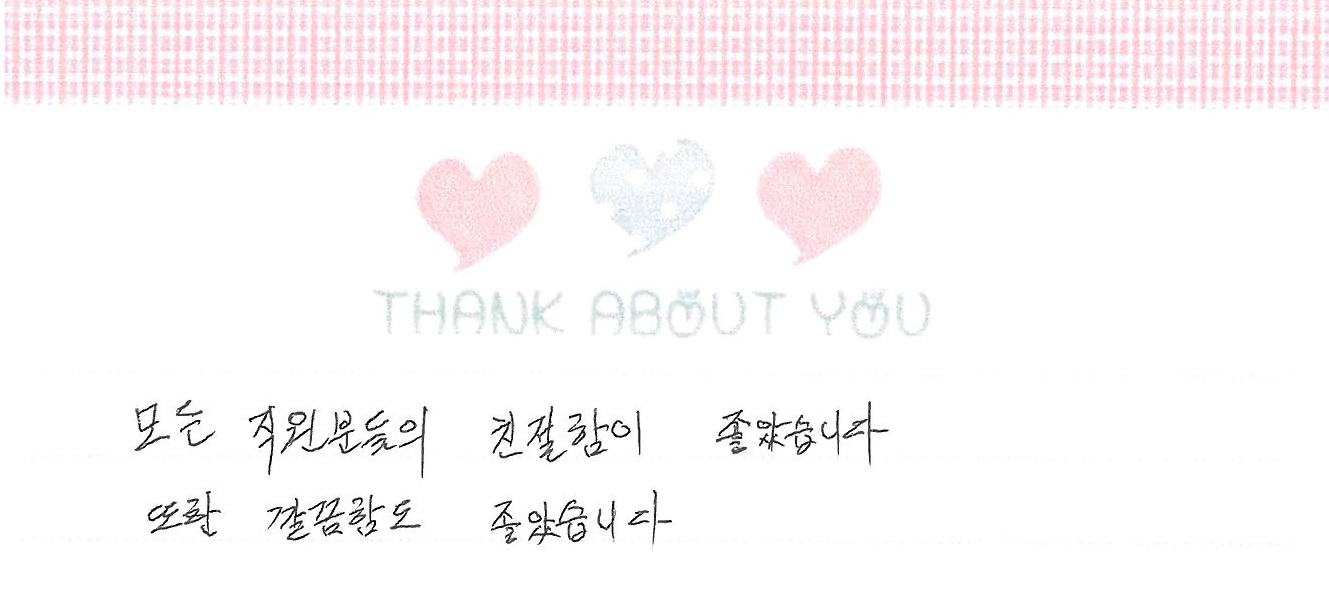 THANK ABOUT YOU
모든 직원분들의 친절함이 좋았습니다
또한 깔끔함도 좋았습니다